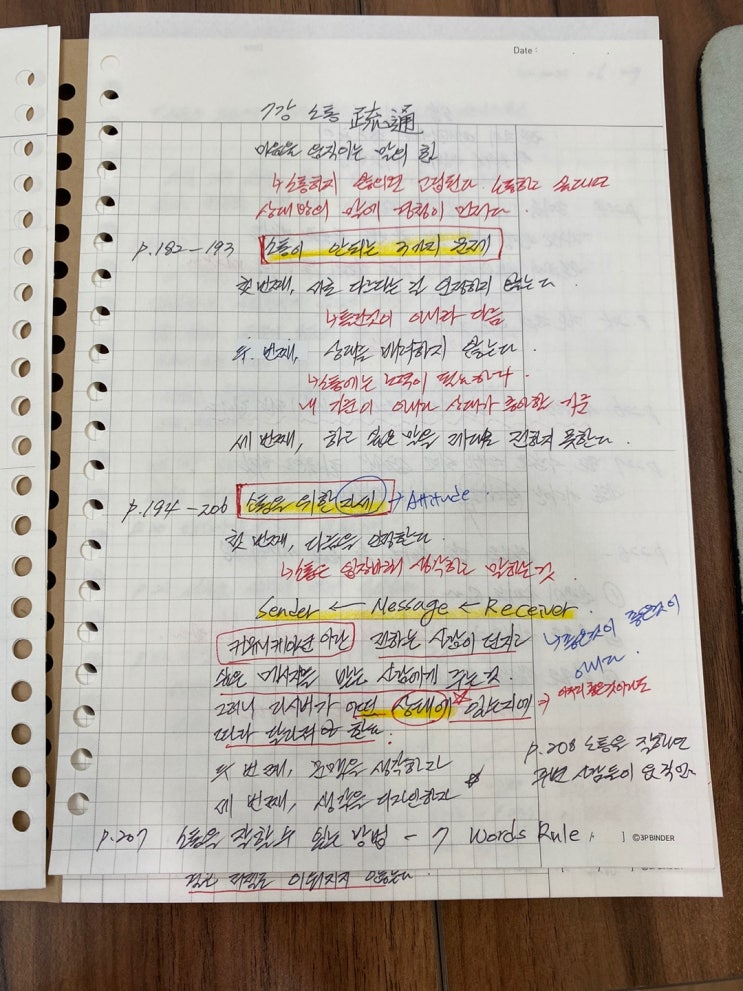 Date :
7강 소통 疏通
마음을 움직이는 말의 힘
↳소통하지 않으면 고립된다. 소통하고 싶다면
상대방의 말에 경청이 먼저다.
p.182-193 소통이 안되는 3가지 문제
첫 번째, 서로 다르다는 걸 인정하지 않는다.
↳틀린것이 아니라 다름
두 번째, 상대를 배려하지 않는다.
↳소통에는 노력이 필요하다
내 기준이 아니라 상대가 좋아할 기준
세 번째, 하고 싶은 말을 제대로 전하지 못한다.
p.194-206 소통을 위한 자세, → Attitude
첫 번째, 다름을 인정한다.
↳소통은 입장바꿔 생각하고 말하는것
Sender ← Message ← Receiver
커뮤니케이션 이란 전하는 사람이 던지고
싶은 메시지를 받는 사람에게 주는것.
↳좋은것이 좋은것이
아니다.
그러니 리시버가 어떤 상태에 있는지에
따라 달라져야 한다.
→ 아무리 좋은것이라도
두 번째, 문맥을 생각하라
세 번째, 생각을 디자인하라
p.208 소통을 잘하면
주변 사람들이 움직인다
p.207 소통을 잘할 수 있는 방법 - 7 Words Rule
©3PBINDER
이어지지 않는다.